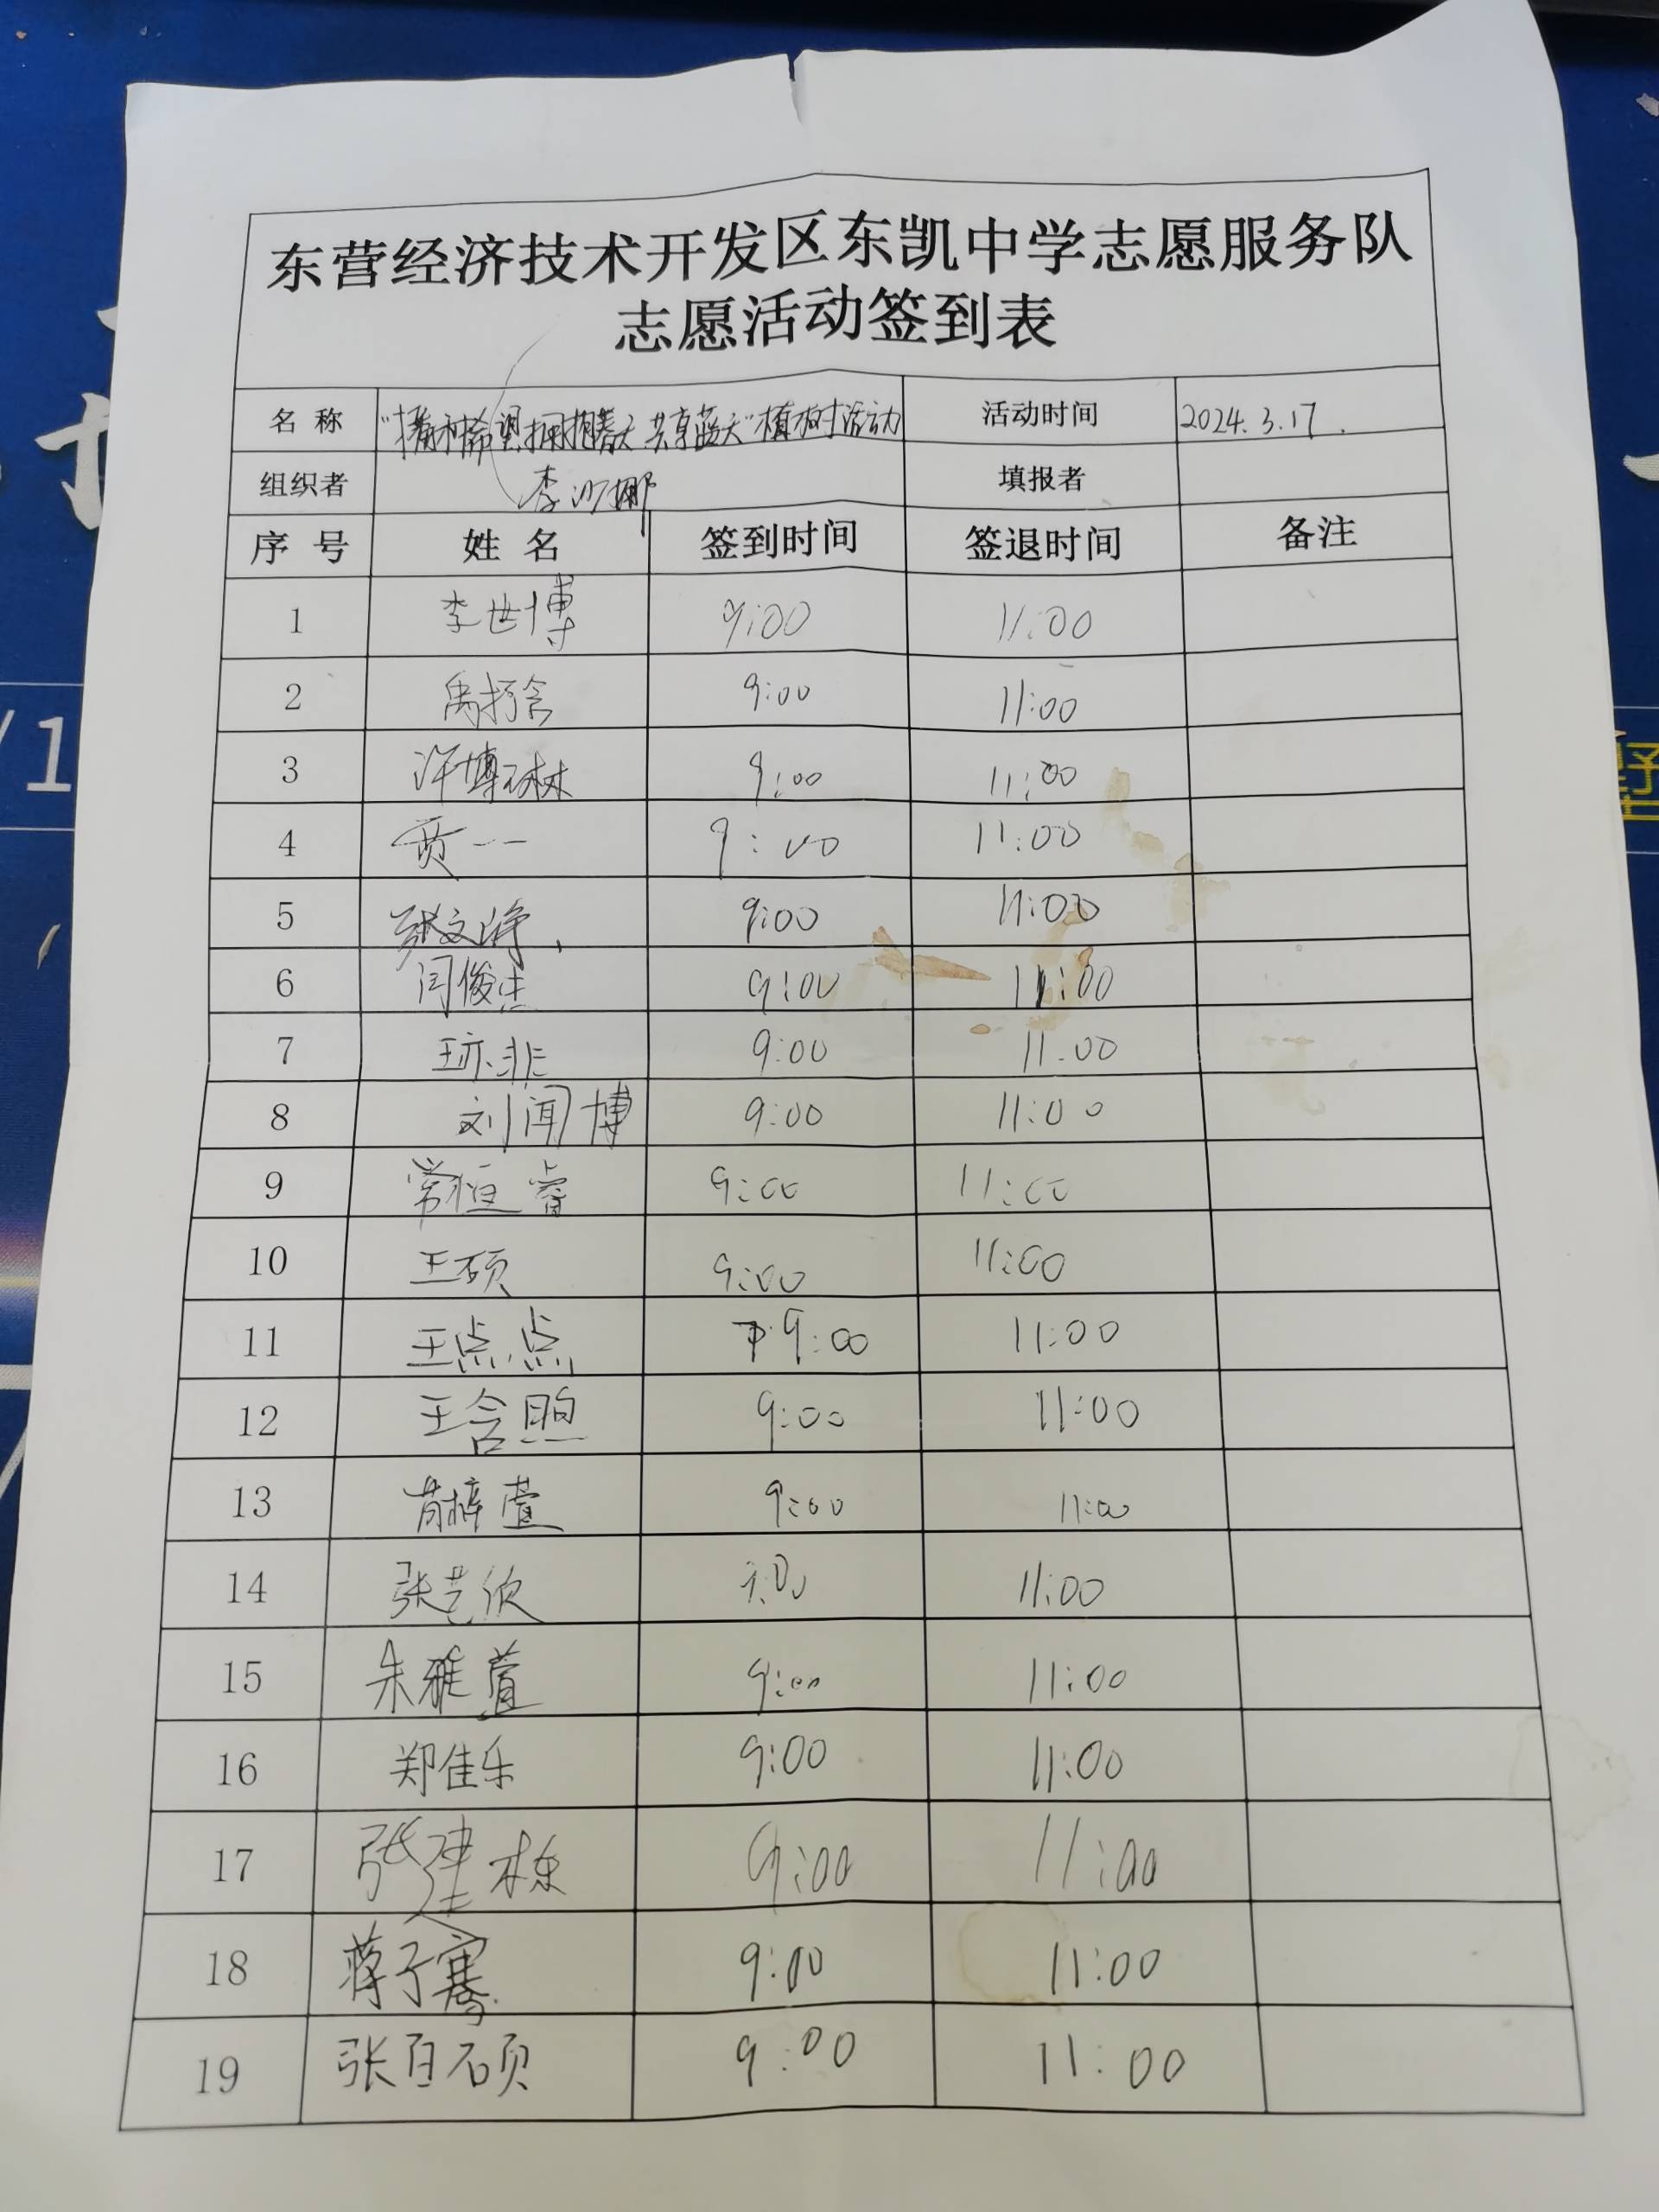 东营经济技术开发区东凯中学志愿服务队
志愿活动签到表
名 称 "播种希望拥抱春天 共享蓝天"植树活动 活动时间 2024.3.17.
组织者 李沙娜 填报者
序 号 姓 名 签到时间 签退时间 备注
1 李世博 9:00 11:00
2 禹抒含 9:00 11:00
3 许博琳 9:00 11:00
4 贾一一 9:00 11:00
5 张文 9:00 11:00
6 闫俊杰 9:00 11:00
7 王亦非 9:00 11:00
8 刘闻博 9:00 11:00
9 常恒睿 9:00 11:00
10 王硕 9:00 11:00
11 王点点 9:00 11:00
12 王含煦 9:00 11:00
13 梓萱 9:00 11:00
14 张艺欣 11:00
15 朱雅萱 9:00 11:00
16 郑佳乐 9:00 11:00
17 张建栋 9:00 11:00
18 蒋子骞 9:00 11:00
19 张百硕 9:00 11:00